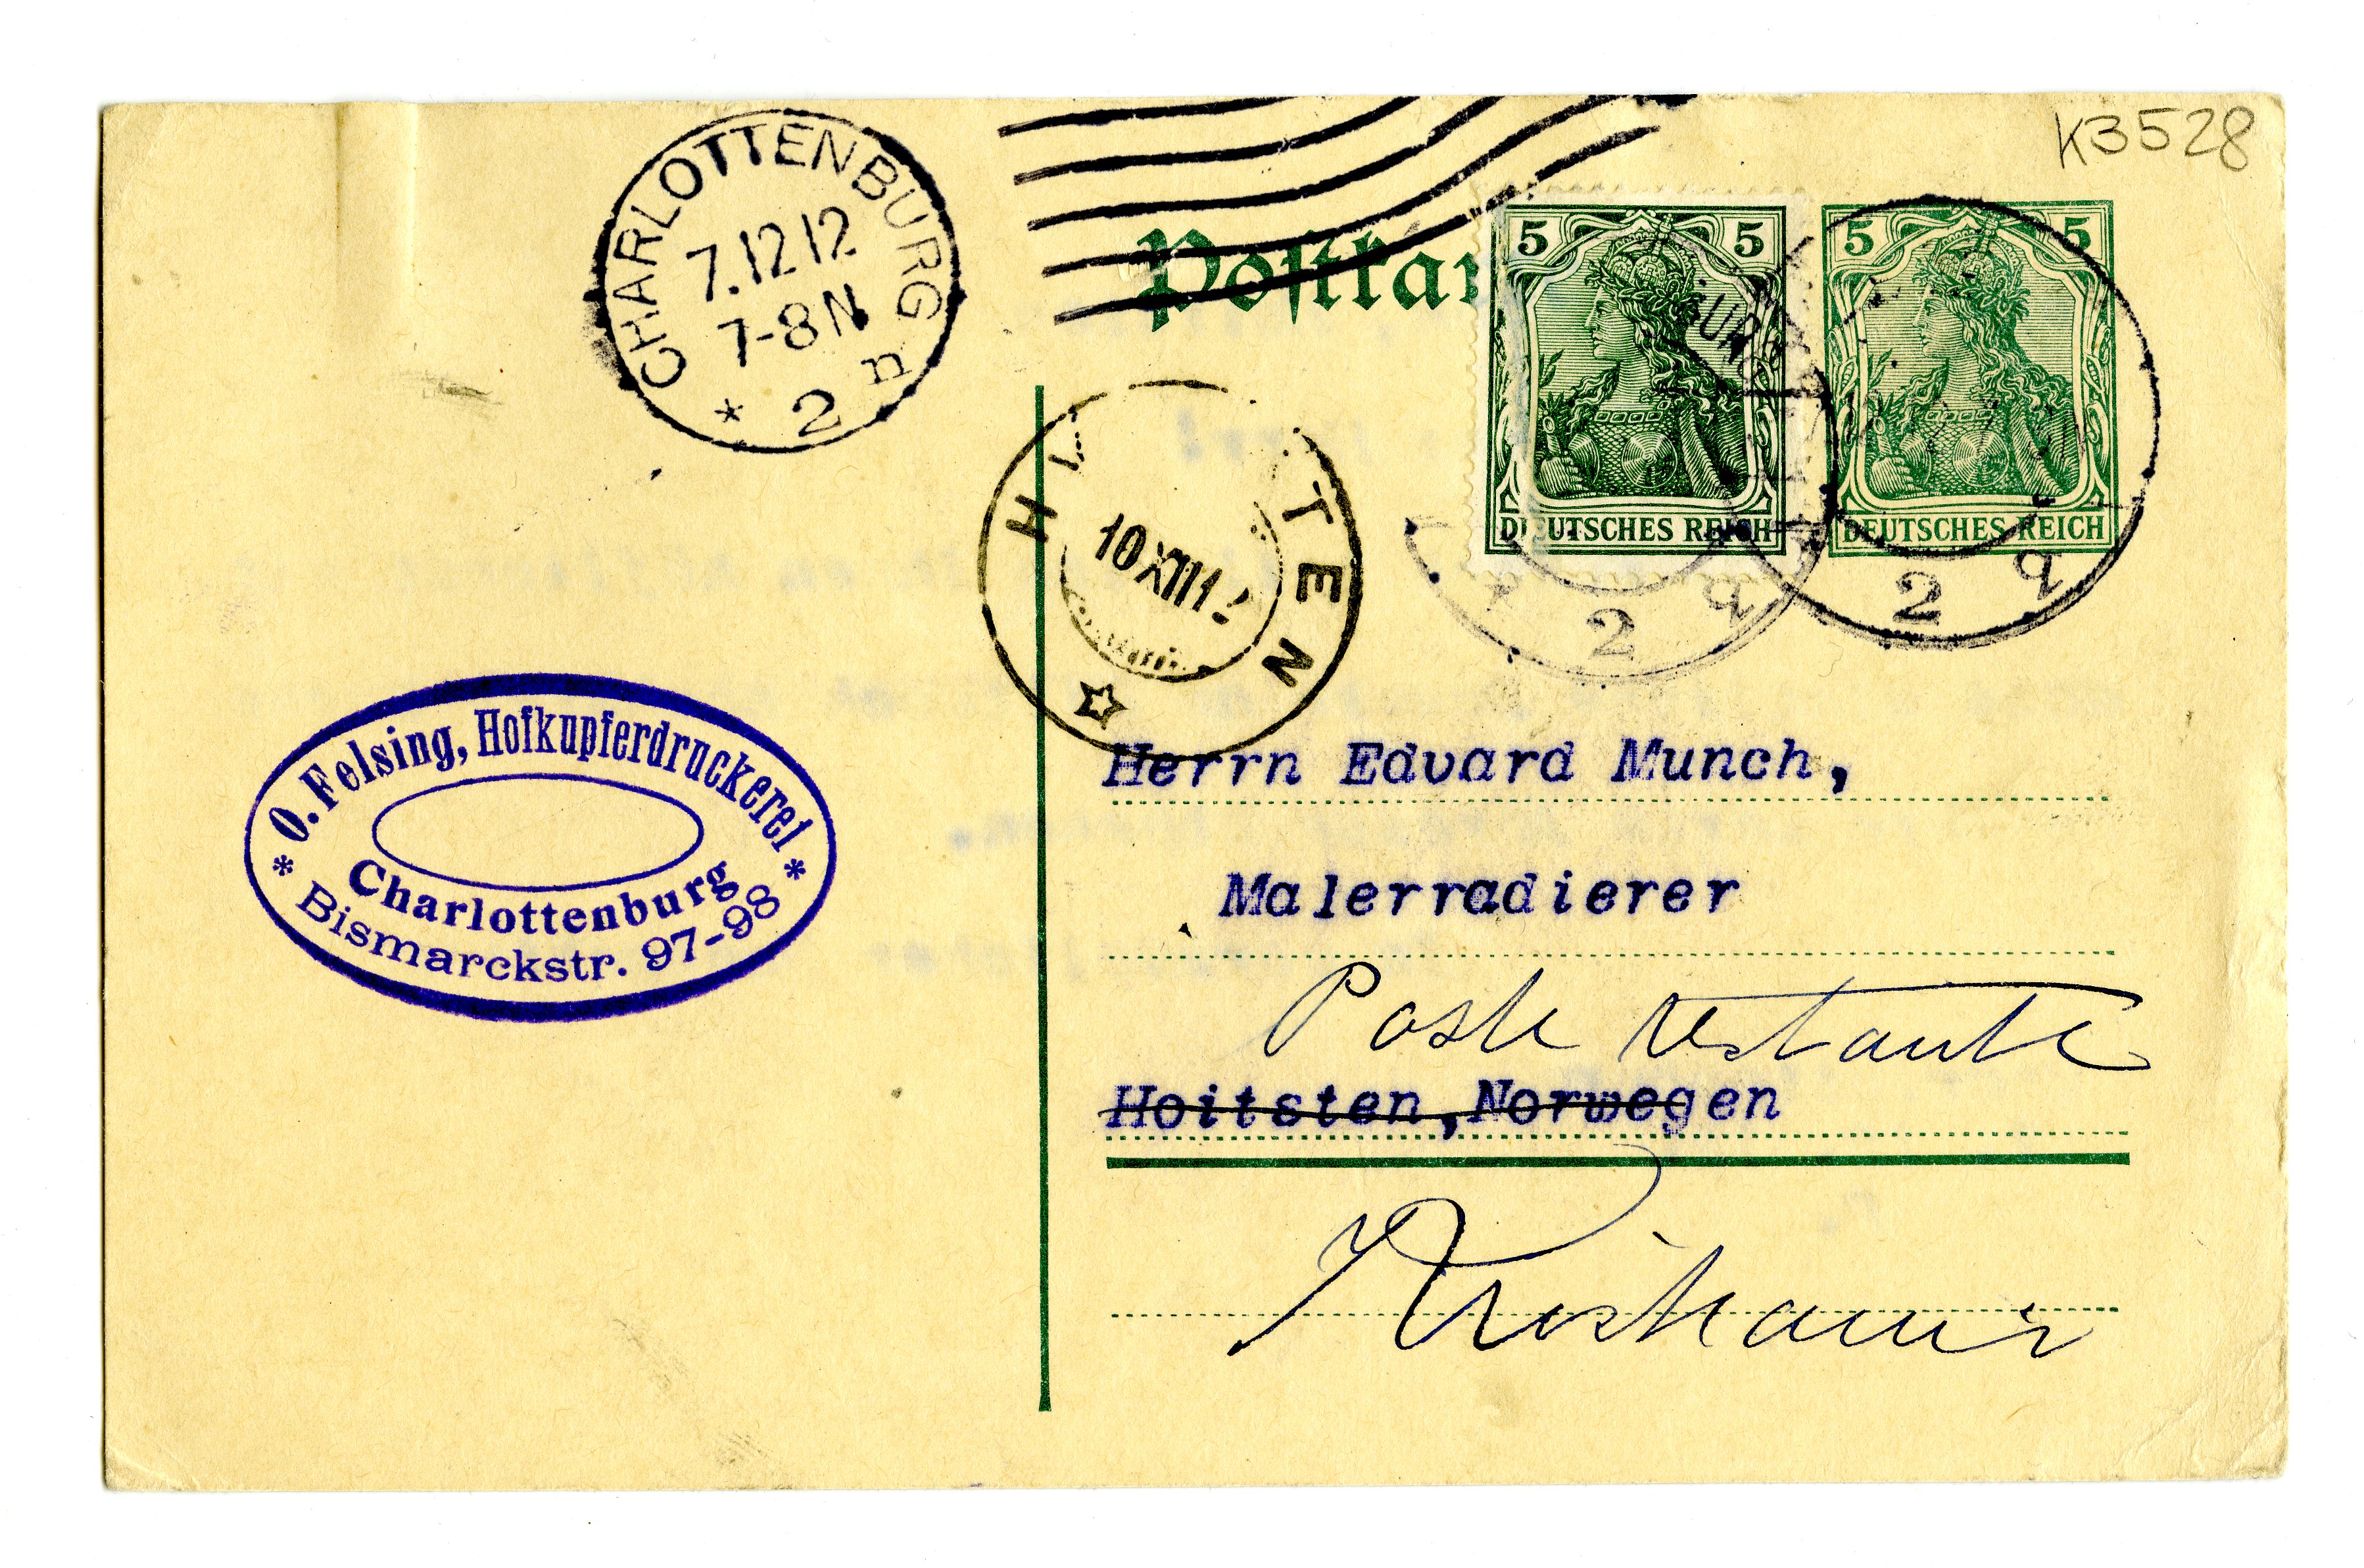 K3528
CHARLOTTENBURG
7.12 12
7-8N
* 2 n
Postkar
5 5
DEUTSCHES REICH
5 5
DEUTSCHES REICH
BURG
2 q
2 q
H TEN
10 XII 1
O. Felsing, Hofkupferdruckerei
Charlottenburg
* Bismarckstr. 97-98 *
Herrn Edvard Munch,
Malerradierer
Poste restante
Hoitsten, Norwegen
Kristiania